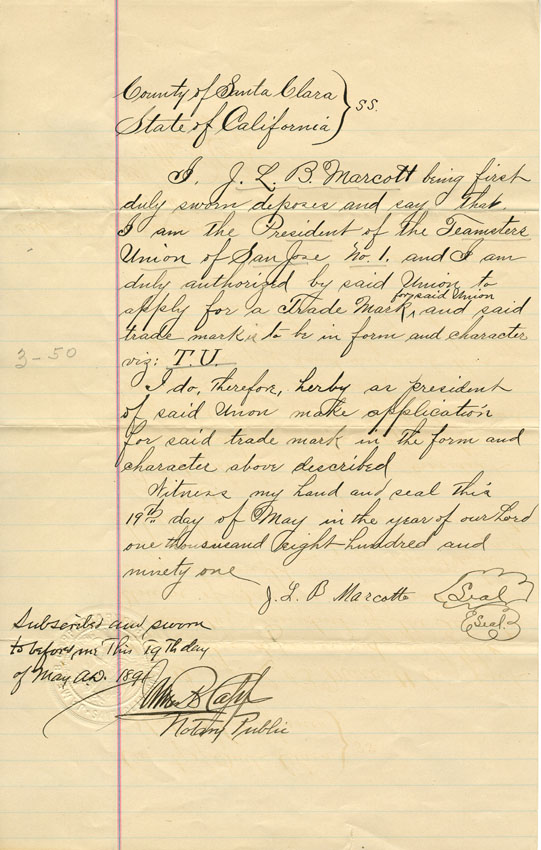 County of Santa Clara } ss.
State of California
I, J. L. B. Marcott being first
duly sworn deposes and say that
I am the President of the Teamsters
Union of San Jose No. 1. and I am
duly authorized by said Union to
for said Union
apply for a Trade Mark, and said
trade mark is to be in form and character
viz: T.U.
3-50
I do, therefore, herby as president
of said Union make application
for said trade mark in the form and
character above described
Witness my hand and seal this
19th day of May in the year of our Lord
one thousand eight hundred and
ninety one
J. L. B Marcotte Seal
Seal
Subscribed and sworn
to before me This 19th day
of May A.D. 1891
Notary Public